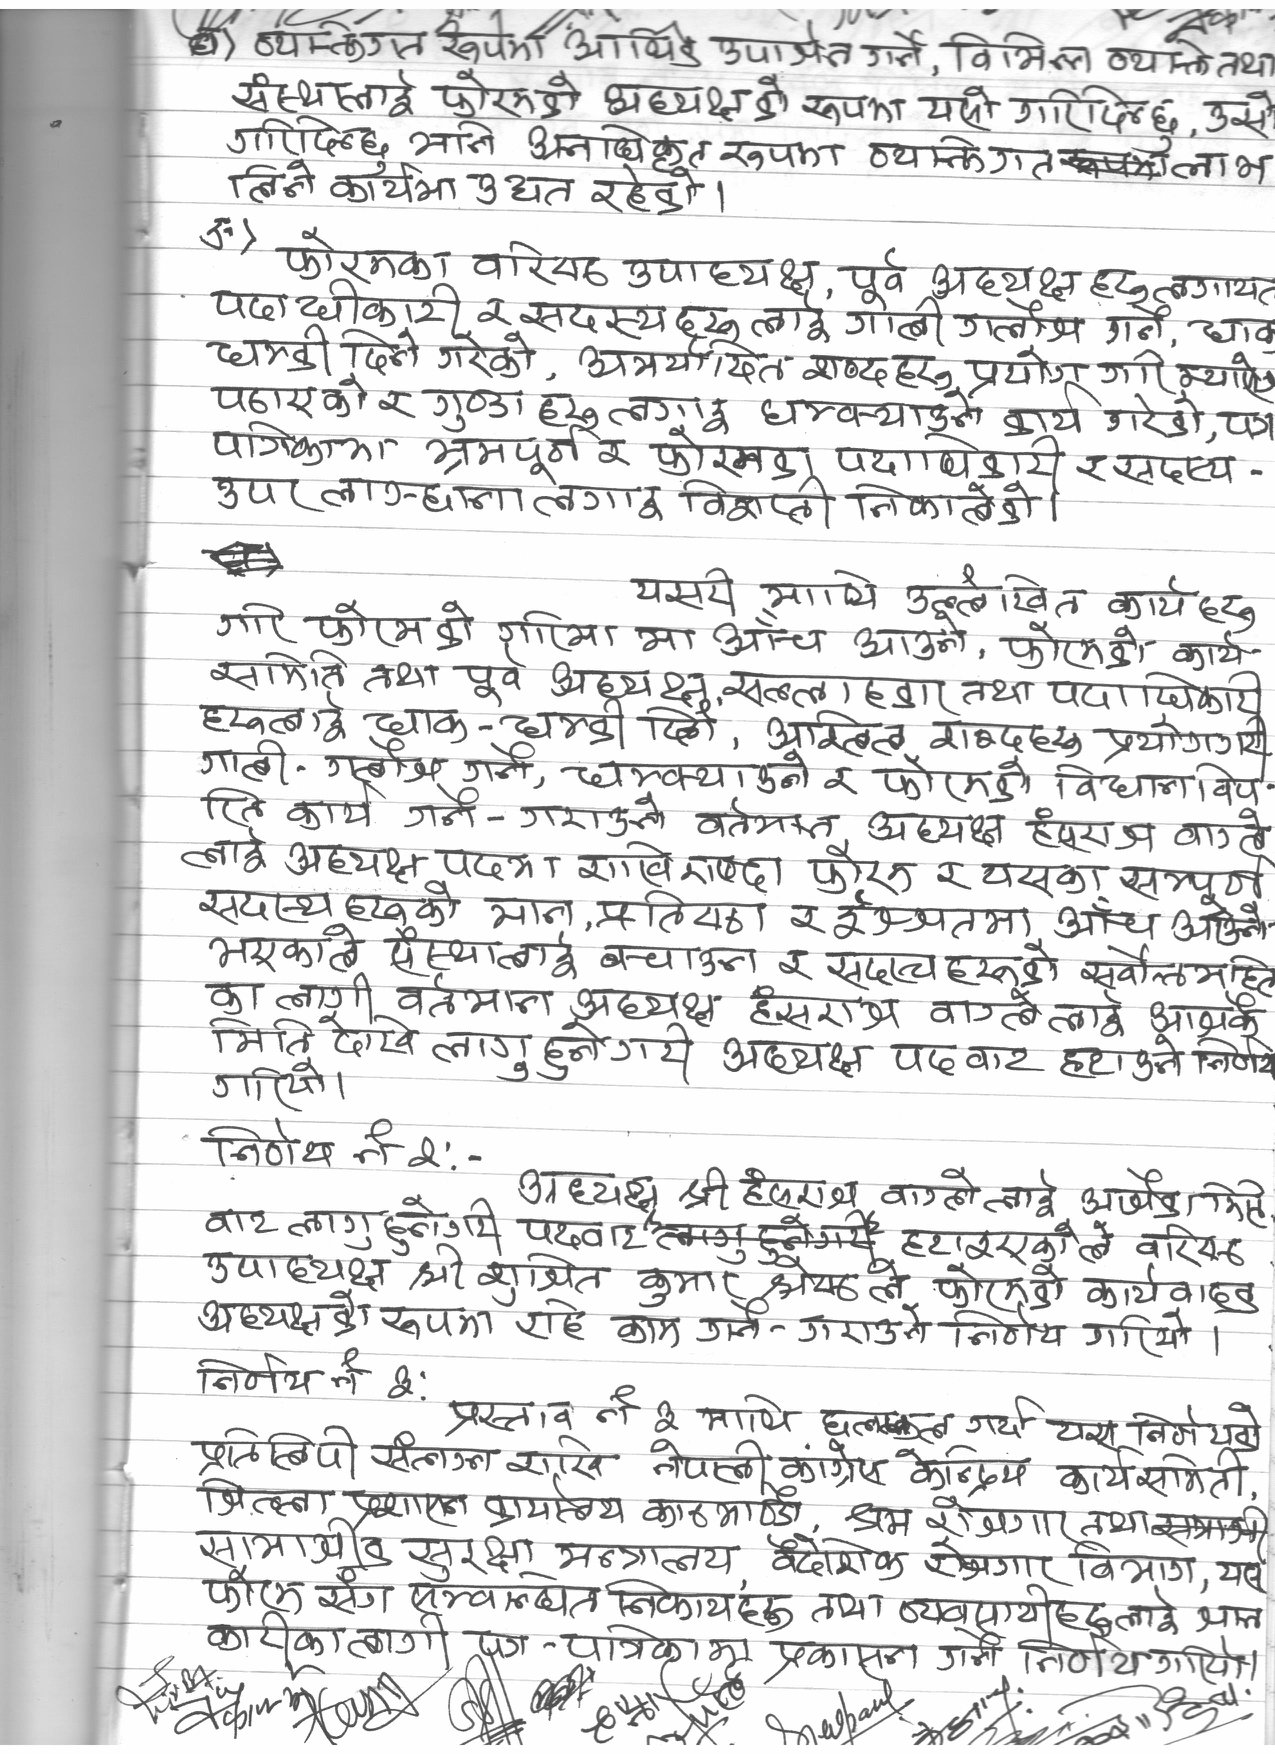 घ) व्यक्तिगत रूपमा आर्थिक उपार्जन गर्ने, विभिन्न व्यक्ति तथा
संस्थालाई फोरमको अध्यक्षको रूपमा यसो गरिदिन्छु, उसो
गरिदिन्छु भनि अनाधिकृत रूपमा व्यक्तिगत लाभ
लिने कार्यमा उद्यत रहेको।
ङ)
फोरमका वरिष्ठ उपाध्यक्ष, पूर्व अध्यक्ष हरु लगायत
पदाधीकारी र सदस्य हरु लाई गाली गलौज गर्ने, धाक
धम्की दिने गरेको, अमर्यादित शब्द हरु प्रयोग गरि म्यासेज
पठाएको र गुण्डा हरु लगाइ धम्क्याउने कार्य गरेको, पत्र
पत्रिकामा भ्रमपूर्ण र फोरमका पदाधिकारी र सदस्य -
उपर लान्छाना लगाइ विज्ञप्ती निकालेको।
यसरी माथि उल्लेखित कार्य हरु
गरि फोरमको गरिमा मा आँच आउने, फोरमको कार्य-
समिति तथा पूर्व अध्यक्ष, सल्लाहकार तथा पदाधिकारी
हरुलाई धाक - धम्की दिने, अश्लिल शब्दहरु प्रयोग गरी
गाली - गलौज गर्ने, धम्क्याउने र फोरमको विधान विप-
रित कार्य गर्ने - गराउने वर्तमान अध्यक्ष हंसराज वाग्ले
लाई अध्यक्ष पदमा राखिराख्दा फोरम र यसका सम्पूर्ण
सदस्य हरुको मान, प्रतिष्ठा र ईज्जतमा आँच आउने
भएकाले संस्थालाई बचाउन र सदस्य हरुको सर्वोत्तम हित
का लागी वर्तमान अध्यक्ष हंसराज वाग्लेलाई आजकै
मिति देखि लागु हुनेगरी अध्यक्ष पदबाट हटाउने निर्णय
गरियो।
निर्णय नं २:-
अध्यक्ष श्री हंसराज वाग्ले लाई आजैका मिति
बाट लागु हुनेगरी पदबाट लागु हुनेगरी हटाइएकोले वरिष्ठ
उपाध्यक्ष श्री सुजित कुमार श्रेष्ठले फोरमको कार्यवाहक
अध्यक्षको रूपमा रहि काम गर्ने - गराउने निर्णय गरियो।
निर्णय नं ३:
प्रस्ताव नं ३ माथि छलफल गर्दा यस निर्णयको
प्रतिलिपी संलग्न राखि नेपाली कांग्रेस केन्द्रिय कार्यसमिती,
जिल्ला प्रशासन कार्यालय काठमाण्डौ, श्रम रोजगार तथा
सामाजीक सुरक्षा मन्त्रालय, वैदेशिक रोजगार विभाग, यस
फोरम सँग सम्बन्धित निकाय हरु तथा व्यवसायीहरुलाई जान
कारीका लागी पत्र - पत्रिकामा प्रकासन गर्ने निर्णय गरियो।